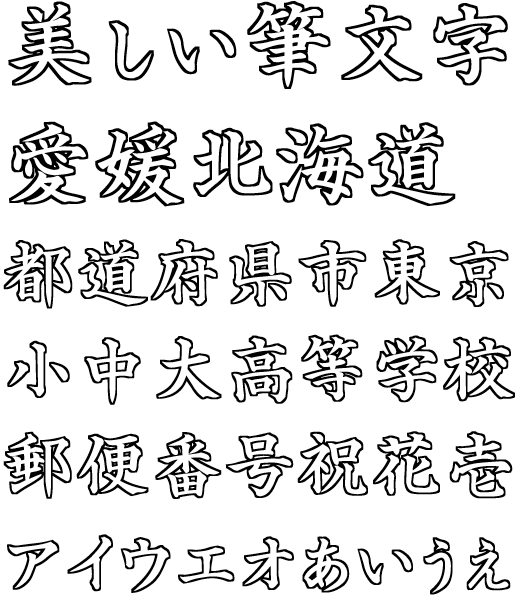 美しい筆文字
愛媛北海道
都道府県市東京
小中大高等学校
郵便番号祝花壱
アイウエオあいうえ